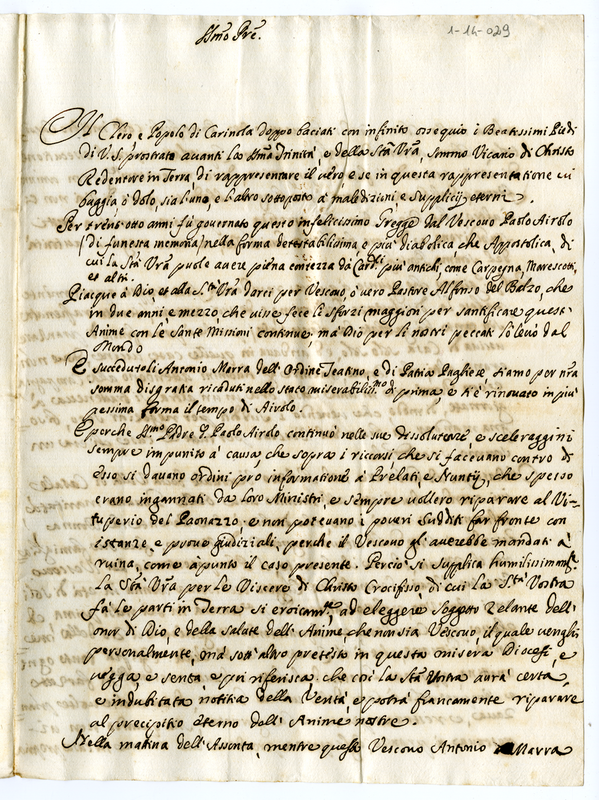 1-14-029
Bmõ Prẽ.
Il Clero e Popolo di Carinola doppo baciati con infinito ossequio i Beatissimi Piedi
di V. S. prostrato avanti la SSma Trinità, e della Stà Vrã, sommo Vicario di Christo
Redentore in Terra, di rappresentare il vero, e se in questa rappresentatione vi
buggia, ò dolo, sia l'uno, e l'altro sottoposto à maledizioni, e supplicij eterni.
Per trent'otto anni fù governato questo infelicissimo Gregge dal Vescovo Paolo Airolo
(di funesta memoria) nella forma detestabilissima e più diabolica, che Appostolica, di
cui la Stà Vrã puole avere piena contezza dà Cardli più antichi, come Carpegna, Marescotti,
et altri.
Piacque à Dio, et alla S.tà Vrã darci per Vescovo, ò vero Pastore Alfonso del Balzo, che
in due anni e mezzo, che visse fece li sforzi maggiori per santificare quest'
Anime con le Sante Missioni continue, mà Dio per li nostri peccati lo levò dal
Mondo
E succedutoli Antonio Marra dell'Ordine Teatino, e di Patria Pugliese, siamo per nrã
somma disgratia ricaduti nello stato miserabiliss.mo di prima, e s'è rinovato in più
pessima forma il tempo di Airolo.
E perche Bmo Pādre P. Paolo Airolo continuò nelle sue dissolutezze, e sceleraggini
sempre impunito à causa, che sopra i ricorsi che si facevano contro di
esso si davano ordini pro informatione à Prelati, e Nuntij, che spesso
erano ingannati da loro Ministri, e sempre vollero riparare al Vi-
tuperio del Paonazzo; e non potevano i poveri Sudditi far fronte con
istanze, e prove giudiziali, perche il Vescovo gl'averebbe mandati à
ruina, come à punto il caso presente. Perciò si supplica humilissimamte
La Stà Vrã per le Viscere di Christo Crocifisso, di cui la Stà Vostra
fà le parti in Terra si eroicamte, ad eleggere soggetto zelante dell'
onor di Dio, e della salute dell'Anime che non sia Vescovo, il quale venghi
personalmente, mà sott'altro pretesto in questa misera Diocesi, e
vegga e senta, e poi riferisca. che così la Stà Vostra avrà certa,
e indubitata notitia della Verità, e potrà francamente riparare
al precipitio eterno dell'Anime nostre.
Nella matina dell'Assonta, mentre questo Vescovo Antonio Marra